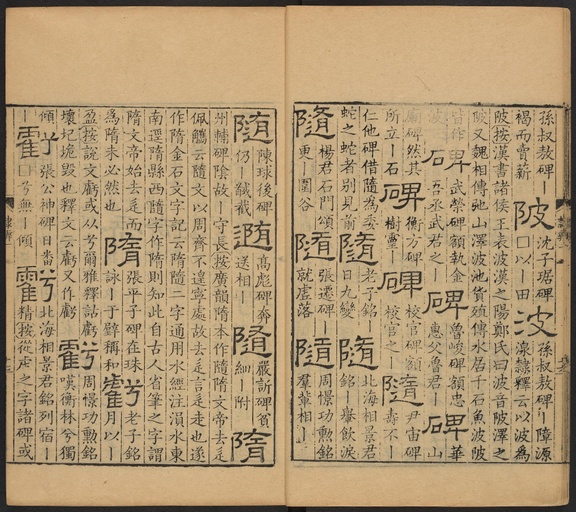 孫叔敖碑丨 陂 沈子琚碑 波 孫叔敖碑丨障源
褐而賣薪 囗以丨田 溒隸釋云以波為
陂按漢書諸侯王表波漢之陽鄭氏曰波音陂澤之
陂又魏相傳弛山澤波池貨殖傳水居千石魚波陂
皆作波 碑 武榮碑額執金吾丞武君之丨 碑 魯峻碑額忠惠父魯君丨 碑 華山
廟碑然其所立丨石 碑 衡方碑樹靈丨 碑 校官碑額校官之丨 隨 尹宙碑壽不丨
仁他碑借隨為委蛇之蛇者別見前 隨 老子銘丨日九變 隨 北海相景君銘丨轝飲淚
隨 楊君石門頌更丨圍谷 隨 張遷碑丨就虛落 隨 周憬功勲銘羣輩相丨
隨 陳球後碑仍丨馘截 遀 高彪碑奔送相丨 隨 嚴訢碑貧細丨附 隋
州輔碑陰故丨守長按廣韻隋本作隨隋文帝去辵
佩觿云隨文以周齊不遑寧處故去辵言辵走也遂
作隋金石文字記云隋隨二字通用水經注溳水東
南逕隋縣西隨字作隋則知此自古人省筆之字謂
隋文帝始去辵而為隋未必然也 隋 張平子碑在珠詠丨于璧稱和 虧 老子銘月以丨
盈按說文虧或从兮爾雅釋詁虧壞圮垝毀也釋文云虧又作虧 周憬功勲銘嘆衡林兮獨
傾丨 張公神碑日番囗兮無丨傾 北海相景君銘列宿丨精按從虍之字諸碑或